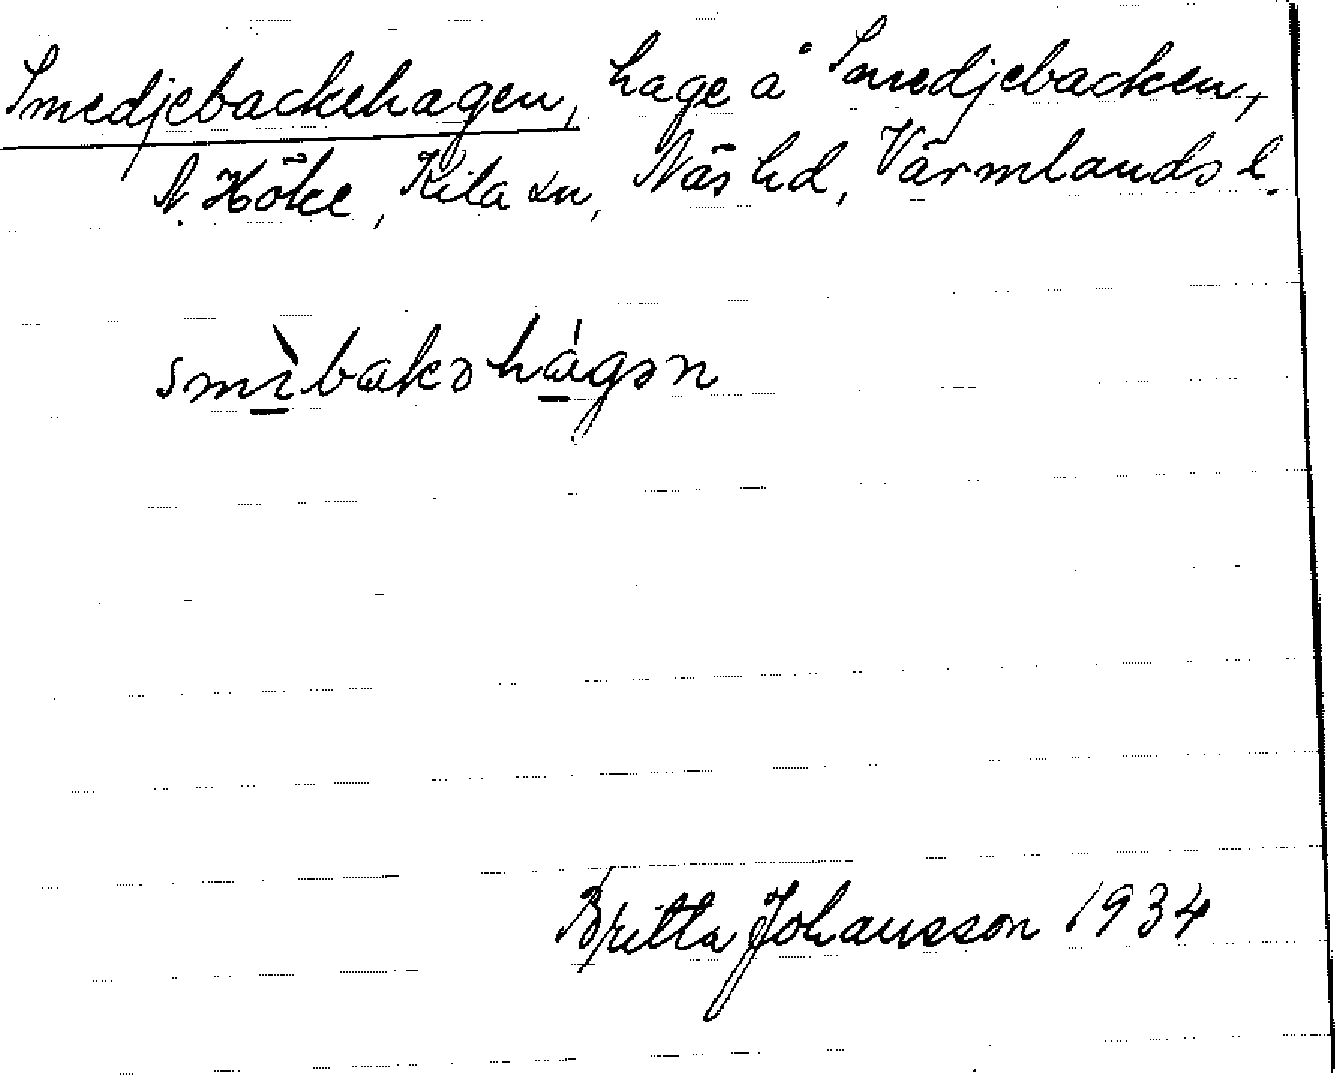 Smedjebackehagen, hage å Smedjebacken,
N. Höke, Kila sn, Näs hd, Värmlands l.
smìbakəhàgən
Britta Johansson 1934